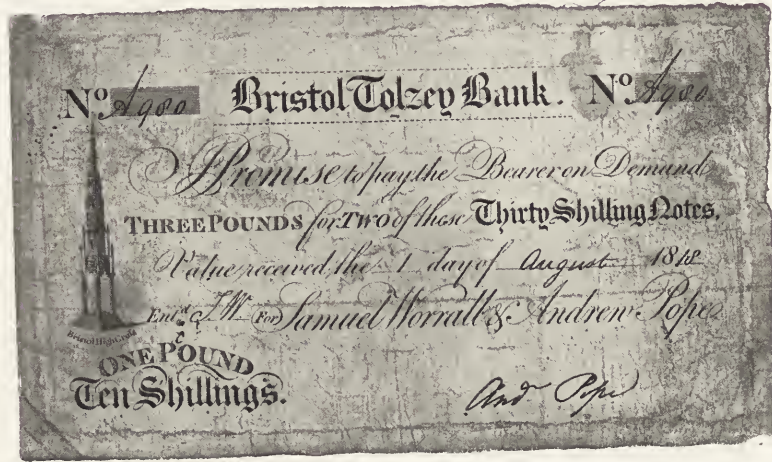 No A980 Bristol Tolzey Bank. No A980
I Promise to pay the Bearer on Demand
THREE POUNDS for TWO of these Thirty Shilling Notes.
Value received the 1 day of August 1818
Ent'd J.W. For Samuel Worrall & Andrew Pope
Bristol High Cross
ONE POUND
Ten Shillings.
And Pope